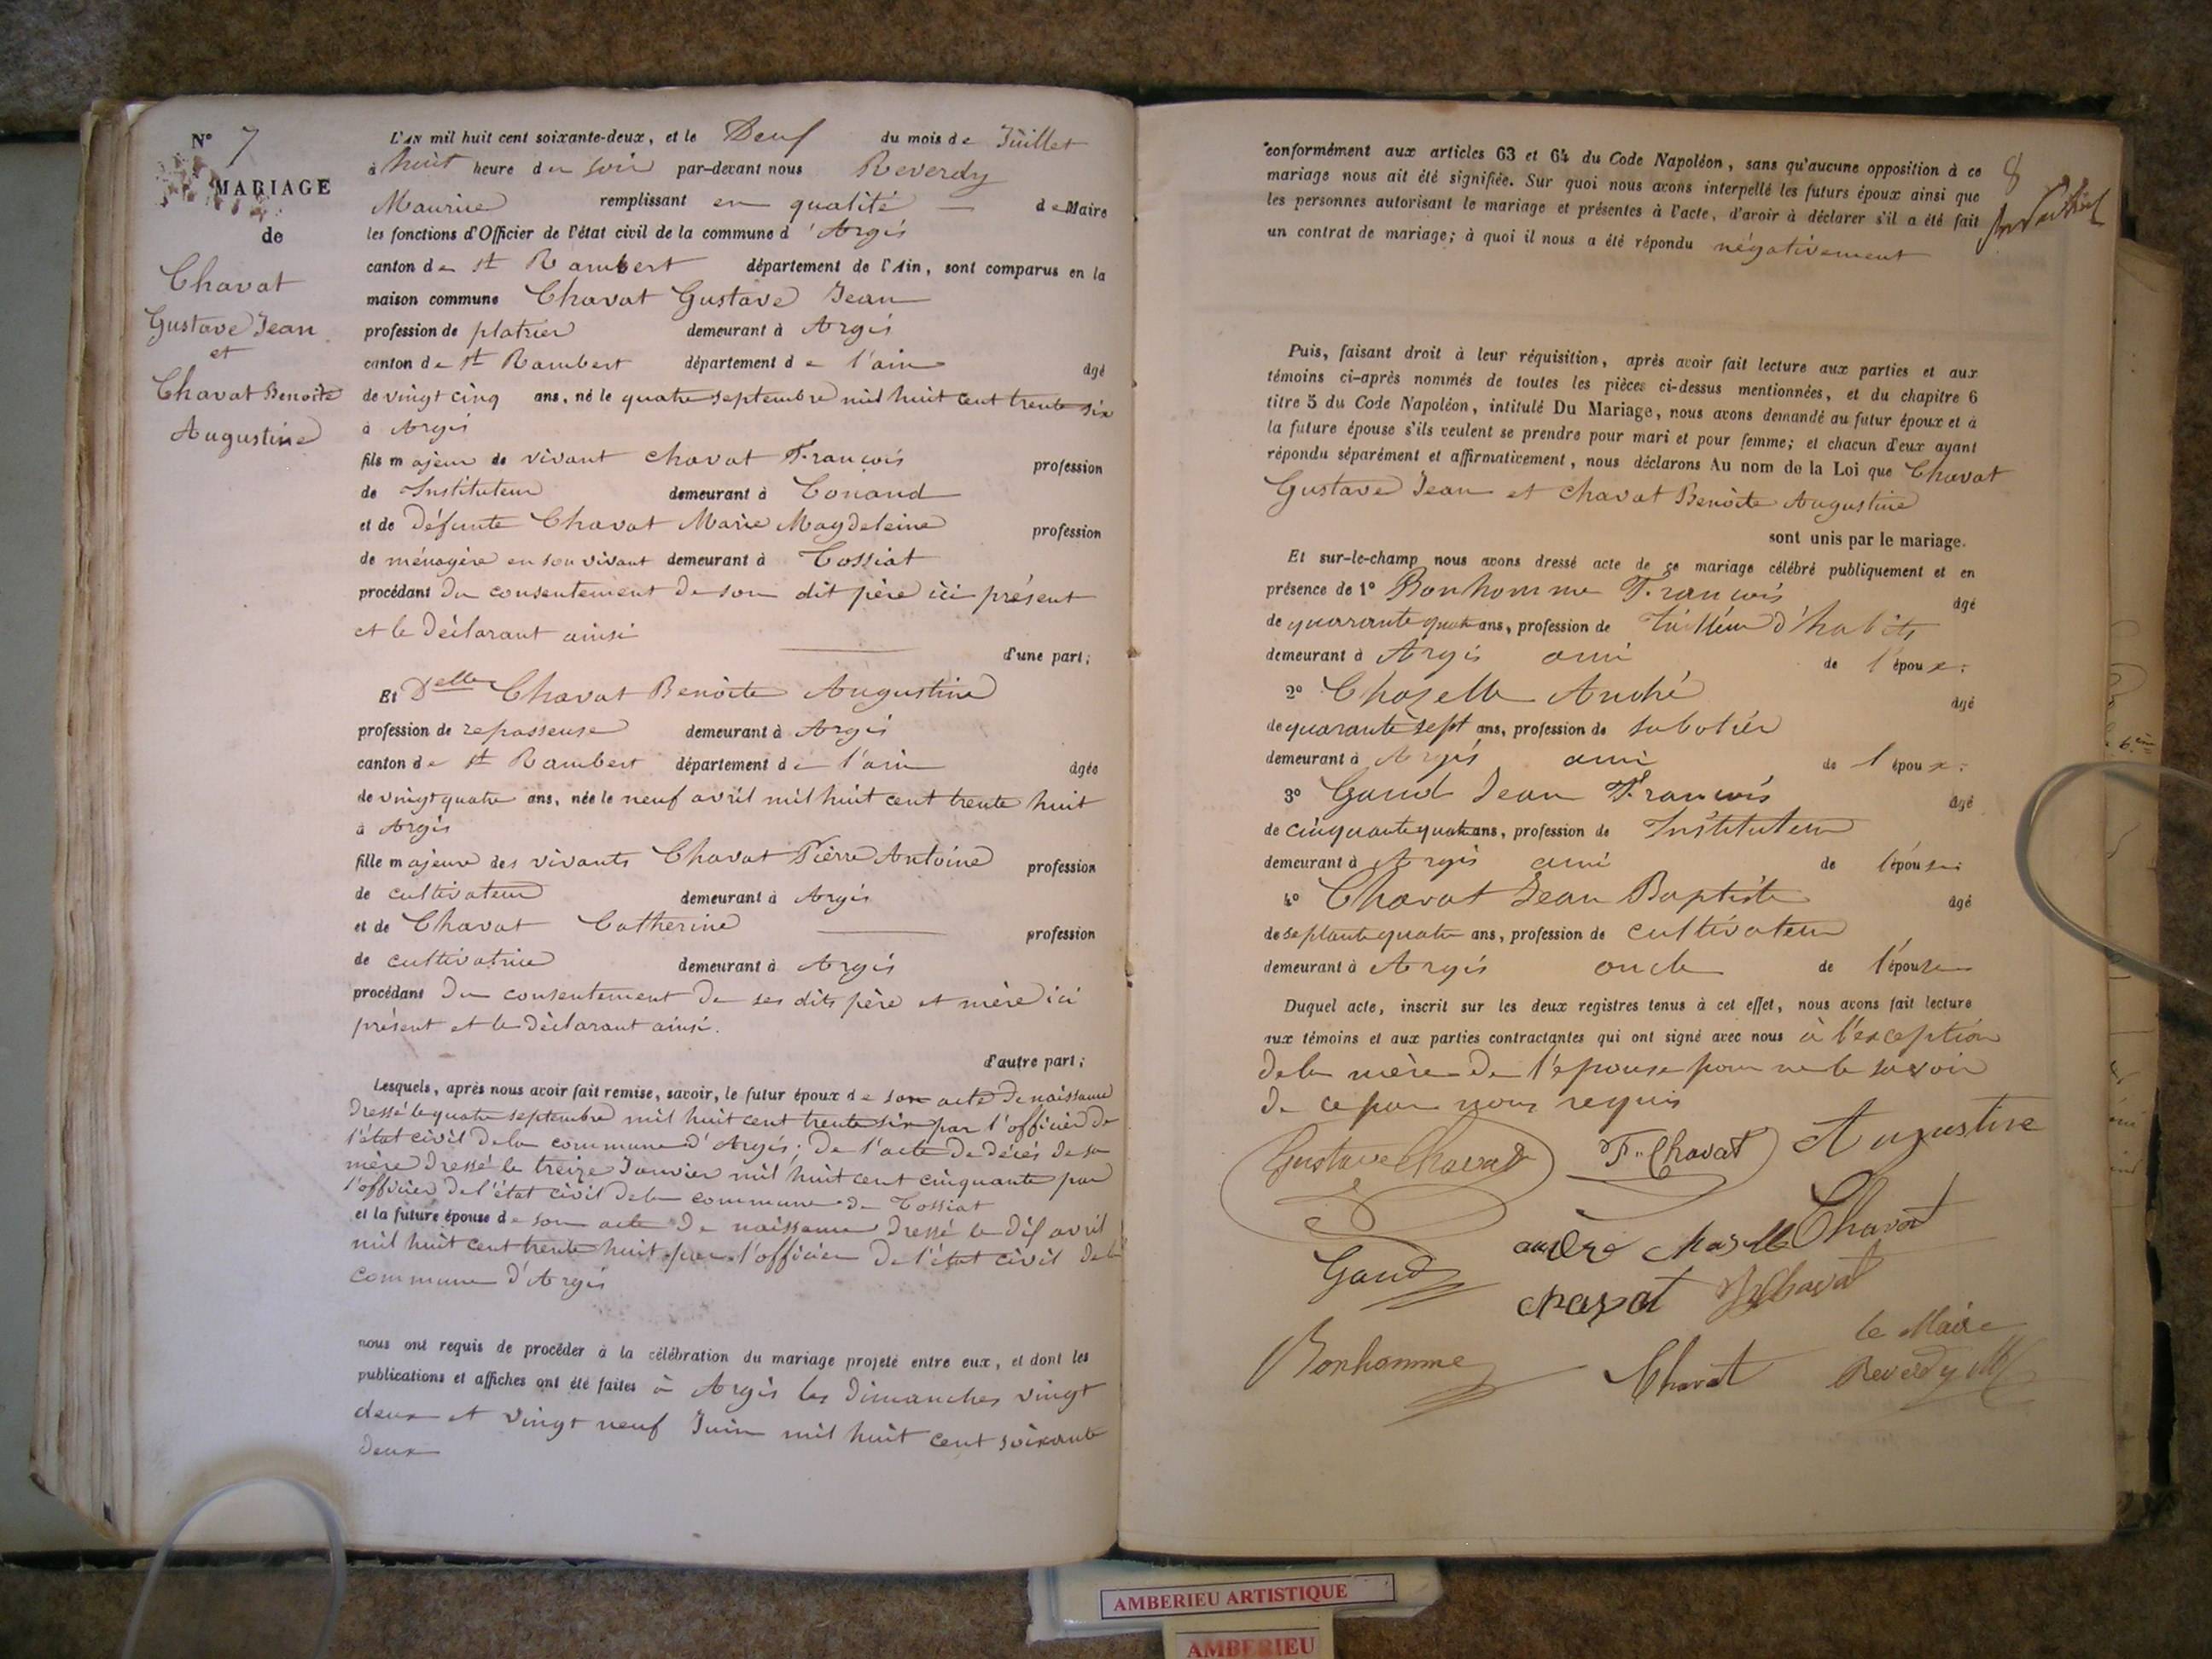 N° 7
MARIAGE
de
Chavat
Gustave Jean
et
Chavat Benoîte
Augustine
L'AN mil huit cent soixante-deux, et le Deux du mois de Juillet
à huit heure du soir par-devant nous Reverdy
Maurice remplissant en qualité — de Maire
les fonctions d'Officier de l'état civil de la commune d'Argis
canton de St Rambert département de l'Ain, sont comparus en la
maison commune Chavat Gustave Jean
profession de platrier demeurant à Argis
canton de St Rambert département de l'ain âgé
de vingt cinq ans, né le quatre septembre mil huit cent trente six
à Argis
fils majeur de vivant Chavat François profession
de Instituteur demeurant à Conand
et de défunte Chavat Marie Magdeleine profession
de ménagère en son vivant demeurant à Tossiat
procédant du consentement de son dit père ici présent
et le déclarant ainsi
d'une part;
Et Delle Chavat Benoîte Augustine
profession de repasseuse demeurant à Argis
canton de St Rambert département de l'ain âgée
de vingt quatre ans, née le neuf avril mil huit cent trente huit
à Argis
fille majeure des vivants Chavat Pierre Antoine profession
de cultivateur demeurant à Argis
et de Chavat Catherine profession
de cultivatrice demeurant à Argis
procédant du consentement de ses dits père et mère ici
présent et le déclarant ainsi.
d'autre part;
Lesquels, après nous avoir fait remise, savoir, le futur époux de son acte de naissance
dressé le quatre septembre mil huit cent trente six par l'officier de
l'état civil de la commune d'Argis; de l'acte de décès de sa
mère dressé le treize Janvier mil huit cent cinquante par
l'officier de l'état civil de la commune de Tossiat
et la future épouse de son acte de naissance dressé le dix avril
mil huit cent trente huit par l'officier de l'état civil de la
commune d'Argis
nous ont requis de procéder à la célébration du mariage projeté entre eux, et dont les
publications et affiches ont été faites à Argis les dimanches vingt
deux et vingt neuf Juin mil huit cent soixante
deux
8
conformément aux articles 63 et 64 du Code Napoléon, sans qu'aucune opposition à ce
mariage nous ait été signifiée. Sur quoi nous avons interpellé les futurs époux ainsi que
les personnes autorisant le mariage et présentes à l'acte, d'avoir à déclarer s'il a été fait
un contrat de mariage; à quoi il nous a été répondu négativement
Puis, faisant droit à leur réquisition, après avoir fait lecture aux parties et aux
témoins ci-après nommés de toutes les pièces ci-dessus mentionnées, et du chapitre 6
titre 5 du Code Napoléon, intitulé Du Mariage, nous avons demandé au futur époux et à
la future épouse s'ils veulent se prendre pour mari et pour femme; et chacun d'eux ayant
répondu séparément et affirmativement, nous déclarons Au nom de la Loi que Chavat
Gustave Jean et Chavat Benoîte Augustine
sont unis par le mariage.
Et sur-le-champ nous avons dressé acte de ce mariage célébré publiquement et en
présence de 1° Bonhomme François âgé
de quarante quatre ans, profession de tailleur d'habits
demeurant à Argis ami de l'époux;
2° Chaselle André âgé
de quarante sept ans, profession de sabotier
demeurant à Argis ami de l'époux;
3° Gaud Jean François âgé
de cinquante quatre ans, profession de Instituteur
demeurant à Argis ami de l'épouse;
4° Chavat Jean Baptiste âgé
de septante quatre ans, profession de cultivateur
demeurant à Argis oncle de l'épouse
Duquel acte, inscrit sur les deux registres tenus à cet effet, nous avons fait lecture
aux témoins et aux parties contractantes qui ont signé avec nous à l'exception
de la mère de l'épouse pour ne le savoir
de ce par nous requis
Gustave Chavat F. Chavat Augustine
Chavat
andré chaselle
Gaud
chavat Chavat
le Maire
Bonhomme Chavat Reverdy M
AMBERIEU ARTISTIQUE
AMBERIEU